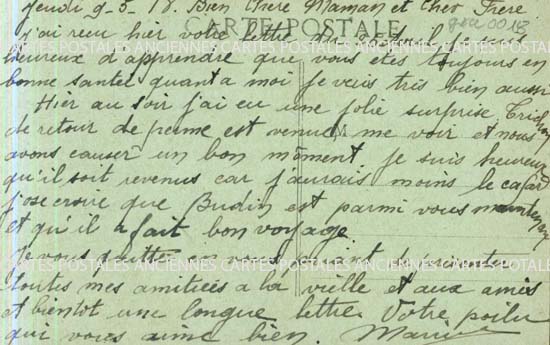 Jeudi 9-5-18. Bien Chère Maman et Cher Frère
CARTE POSTALE
j'ai reçu hier votre lettre du
heureux d'apprendre que vous êtes toujours en
bonne santé quant a moi je vais très bien aussi
Hier au soir j'ai eu une jolie surprise
de retour de perme est venu me voir et nous
avons causer un bon môment. Je suis heureux
qu'il soit revenus car j'aurais moins le cafard
j'ose croire que Budin est parmi vous maintenant
et qu'il a fait bon voyage.
Je vous quitte en vous priant de présenter
toutes mes amitiées a la vieille et aux amis
et bientot une longue lettre. Votre poilu
qui vous aime bien.
CARTES POSTALES ANCIENNES CARTES POSTALES ANCIENNES